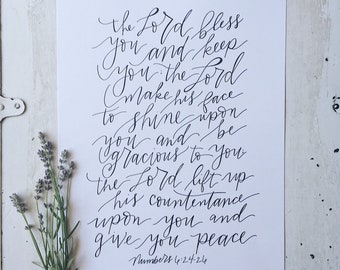 the Lord bless
you and keep
you the Lord
make his face
to shine upon
you and be
gracious to you
the Lord lift up
his countentance
upon you and
give you peace
Numbers 6:24-26